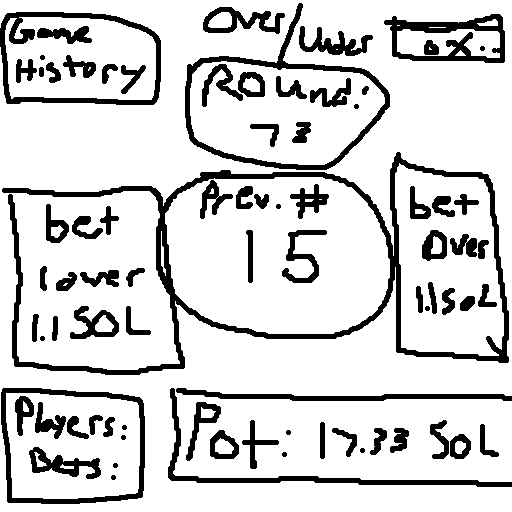 Game
History
Over/Under
0x..
ROund:
73
bet
lower
1.1 SOL
Prev. #
15
bet
Over
1.1 SOL
Players:
Bets:
Pot: 17.33 SOL